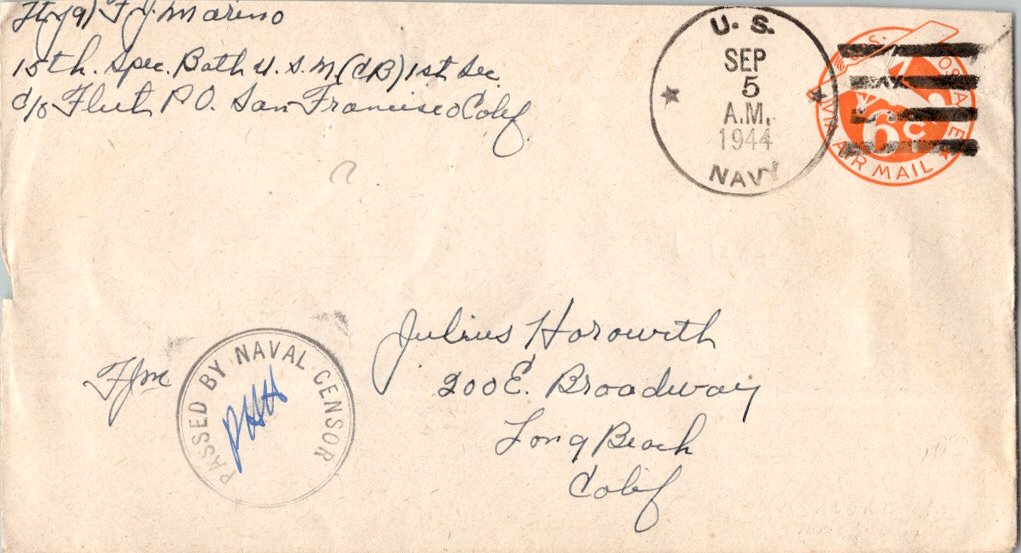 Lt(jg) F. J. Marino
15th. Spec. Batt. U.S.N.(CB) 1st Sec.
c/o Fleet P.O. San Francisco Calif.
U. S.
SEP
5
A.M.
1944
NAVY
U.S. POSTAGE
6¢
VIA AIR MAIL
Julius Horowith
200 E. Broadway
Long Beach
Calif
FJM
PASSED BY NAVAL CENSOR